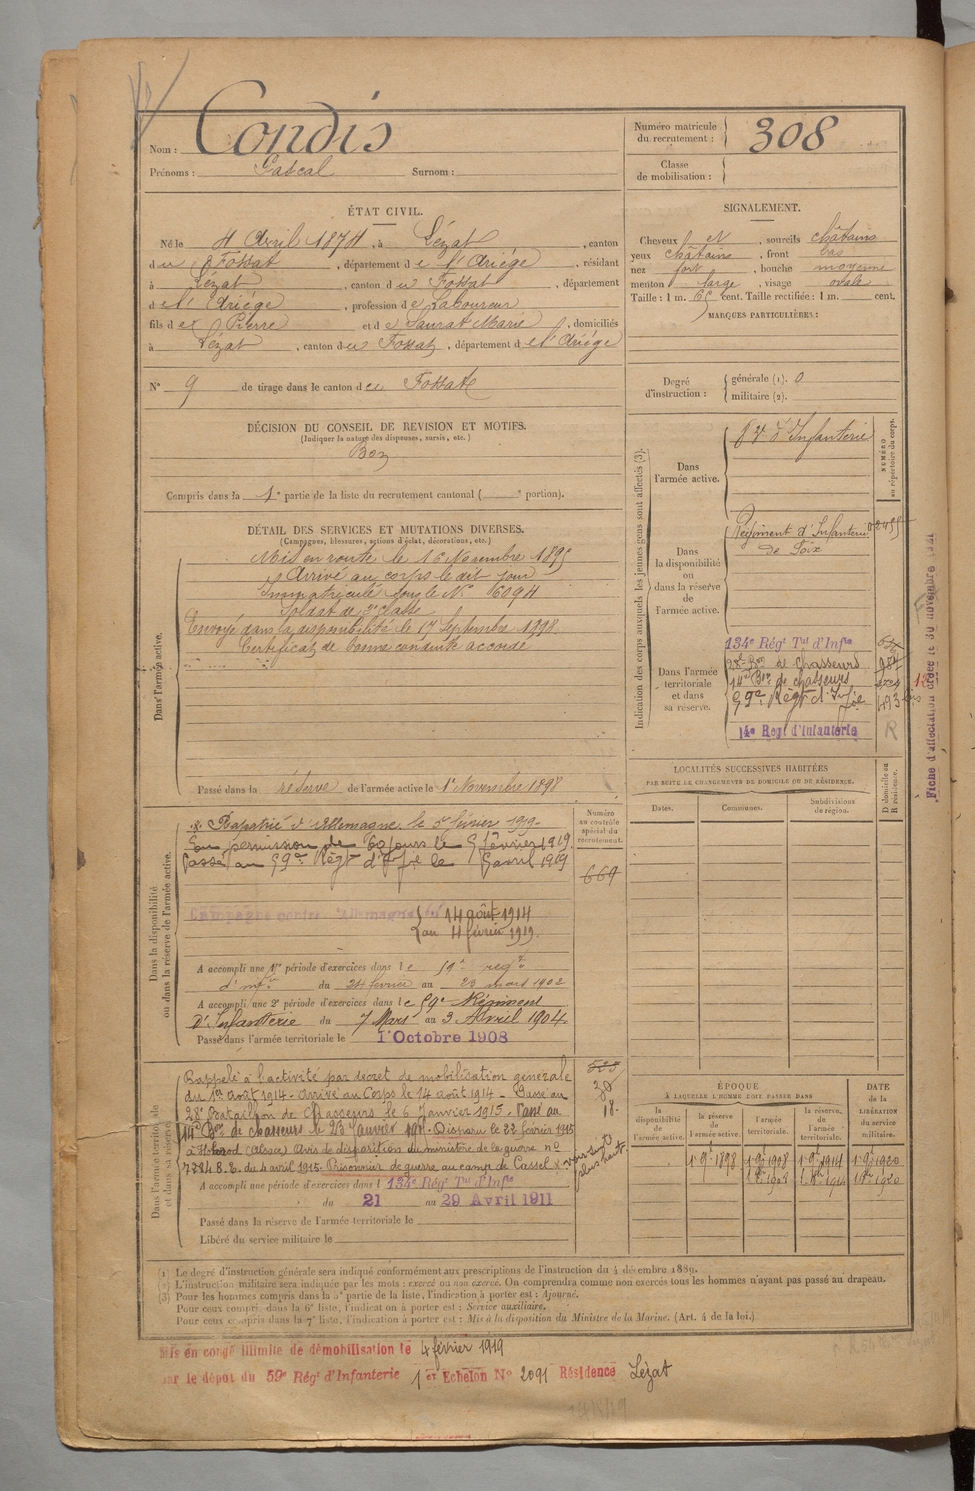 Nom : Condis
Prénoms : Pascal Surnom :
Numéro matricule du recrutement : 308
Classe de mobilisation :
ÉTAT CIVIL.
Né le 4 Avril 1874, à Lézat, canton
du Fossat, département de l'Ariége, résidant
à Lézat, canton du Fossat, département
de l'Ariége, profession de Laboureur
fils de Pierre et de Saurat Marie, domiciliés
à Lézat, canton du Fossat, département de l'Ariége
N° 9 de tirage dans le canton du Fossat
DÉCISION DU CONSEIL DE REVISION ET MOTIFS.
(Indiquer la nature des dispenses, sursis, etc.)
Bon
Compris dans la 1e partie de la liste du recrutement cantonal ( e portion).
SIGNALEMENT.
Cheveux et, sourcils châtains
yeux châtains, front bas
nez fort, bouche moyenne
menton large, visage ovale
Taille : 1 m. 65 cent. Taille rectifiée : 1 m. cent.
MARQUES PARTICULIÈRES :
Degré d'instruction : générale (1). 0
militaire (2).
DÉTAIL DES SERVICES ET MUTATIONS DIVERSES.
(Campagnes, blessures, actions d'éclat, décorations, etc.)
Dans l'armée active.
Mis en route le 16 Novembre 1895
Arrivé au corps le dit jour
Immatriculé sous le N° 6094
Soldat de 2e classe
Envoyé dans la disponibilité le 17 Septembre 1898.
Certificat de bonne conduite accordé
Passé dans la réserve de l'armée active le 1er Novembre 1898
Indication des corps auxquels les jeunes gens sont affectés (3).
NUMÉRO au répertoire du corps.
Dans l'armée active.
d'Infanterie
Dans la disponibilité ou dans la réserve de l'armée active.
Régiment d'Infanterie
de Foix
Dans l'armée territoriale et dans sa réserve.
134e Régt Tal d'Infie
28e Bon de Chasseurs
14e Bon de chasseurs
59e Régt d'Infie
14e Regt d'Infanterie
R
Fiche d'affectation créée le 30 novembre
LOCALITÉS SUCCESSIVES HABITÉES
PAR SUITE DE CHANGEMENTS DE DOMICILE OU DE RÉSIDENCE.
Dates. Communes. Subdivisions de région. D domicile ou R résidence.
Dans la disponibilité ou dans la réserve de l'armée active.
Numéro au contrôle spécial du recrutement.
669
Rapatrié d'Allemagne le février 1919
En permission de 60 jours le février 1919
Passé au 59e Régt d'Ifie le avril 1909
Campagne contre l'Allemagne du 14 août 1914
au 4 février 1919.
A accompli une 1re période d'exercices dans le 59e regt
d'infie du 24 février au 23 mars 1902
A accompli une 2e période d'exercices dans le 59e Régiment
d'Infanterie du 7 Mars au 3 Avril 1904
Passé dans l'armée territoriale le 1er Octobre 1908
Dans l'armée territoriale et dans sa réserve.
Rappelé à l'activité par décret de mobilisation générale
du 1er août 1914 - Arrivé au Corps le 14 août 1914 - Passé au
28e Bataillon de Chasseurs le 6 Janvier 1915 - Passé au
14e Bon de chasseurs le 23 Janvier 1915. Disparu le 22 février 1915
à (Alsace) Avis de disposition du ministère de la guerre n°
7284 B. E. du 4 avril 1915 Prisonnier de guerre au camp de Cassel
voir suite plus haut
A accompli une période d'exercices dans l 134e Régt Tal d'Infie
du 21 au 29 Avril 1911
Passé dans la réserve de l'armée territoriale le
Libéré du service militaire le
ÉPOQUE
À LAQUELLE L'HOMME DOIT PASSER DANS
DATE de la LIBÉRATION du service militaire.
la disponibilité de l'armée active. la réserve de l'armée active. l'armée territoriale. la réserve de l'armée territoriale.
1er 9bre 1898 1er 9bre 1908 1er 9bre 1914 1er 9bre 1920
1er 8bre 1908 1er 8bre 1914 1er 8bre 1920
(1) Le degré d'instruction générale sera indiqué conformément aux prescriptions de l'instruction du 4 décembre 1889.
(2) L'instruction militaire sera indiquée par les mots : exercé ou non exercé. On comprendra comme non exercés tous les hommes n'ayant pas passé au drapeau.
(3) Pour les hommes compris dans la 5e partie de la liste, l'indication à porter est : Ajourné.
Pour ceux compris dans la 6e liste, l'indication à porter est : Service auxiliaire.
Pour ceux compris dans la 7e liste, l'indication à porter est : Mis à la disposition du Ministre de la Marine. (Art. 4 de la loi.)
Mis en congé illimité de démobilisation le 4 février 1919
par le dépôt du 59e Régt d'Infanterie 1er Echelon N° 2091 Résidence Lézat